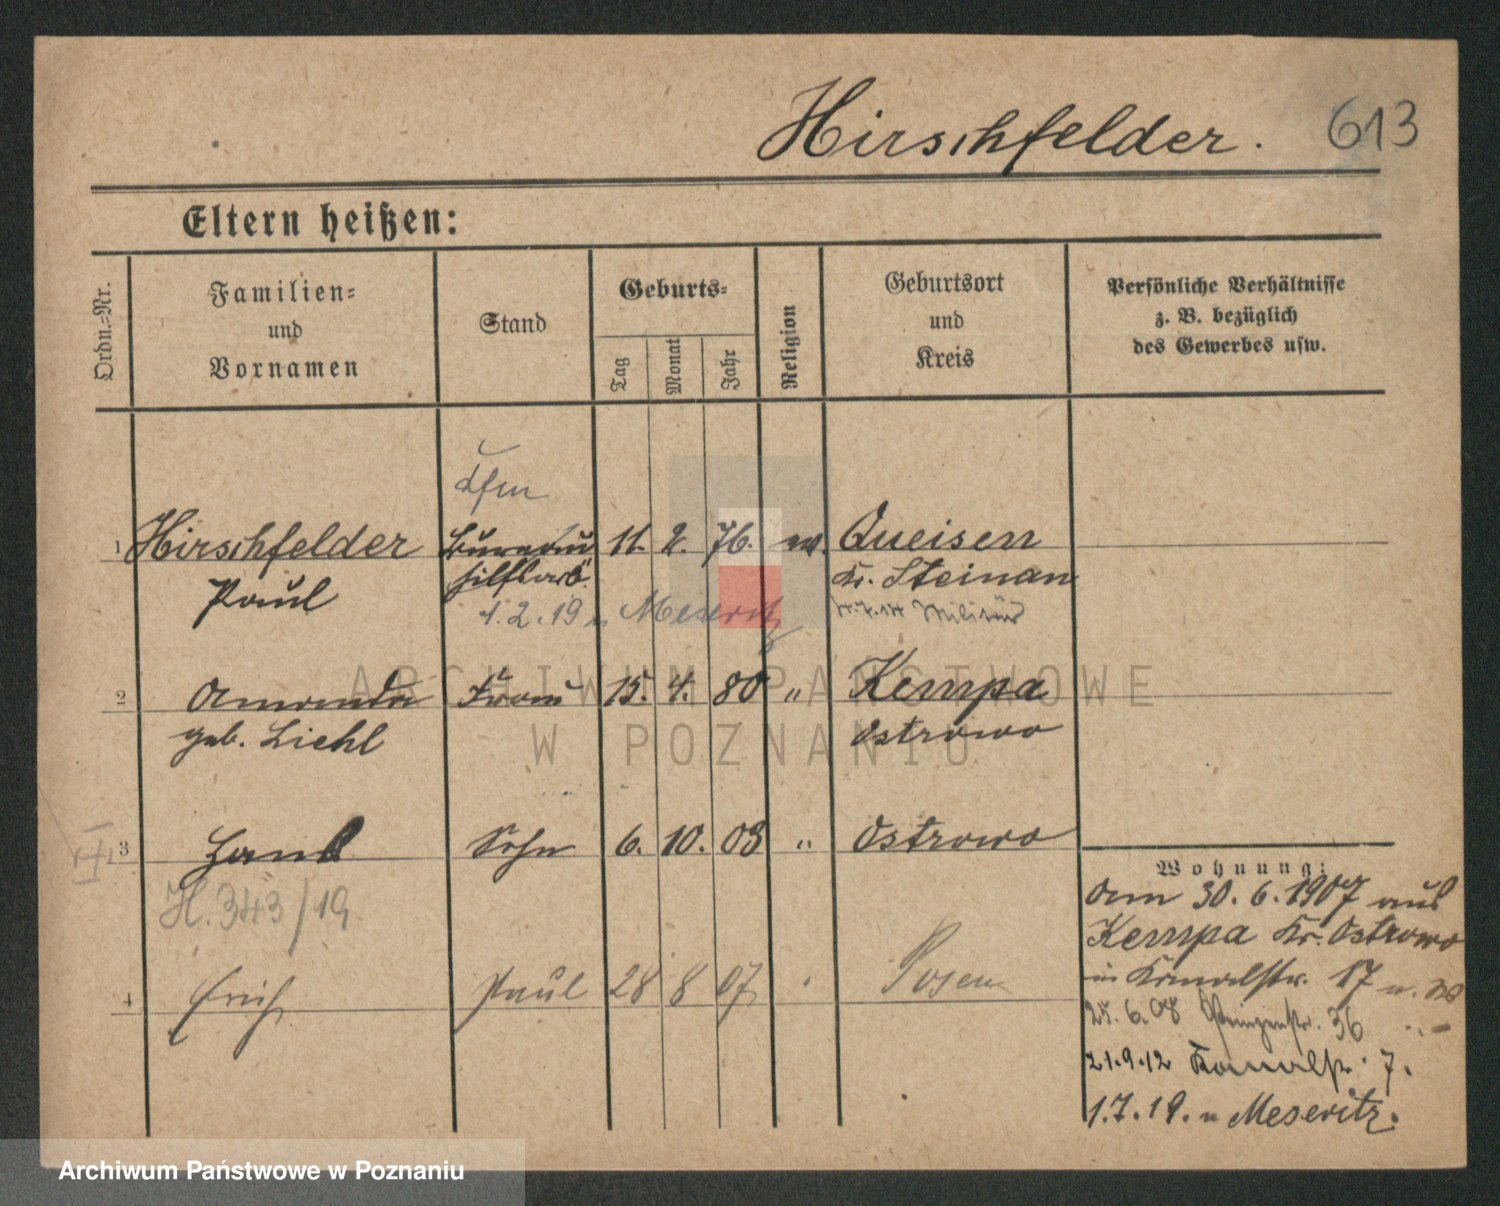 Hirschfelder. 613
Eltern heißen:
Ordn.=Nr.
Familien=
und
Vornamen
Stand
Geburts=
Tag
Monat
Jahr
Religion
Geburtsort
und
Kreis
Persönliche Verhältnisse
z. B. bezüglich
des Gewerbes usw.
1 Hirschfelder Bureau 11. 2. 76. ev. Queisen
Paul hilfsarb. Kr. Steinau
1.2.19 n Meseritz Militär
2 Amanda Frau 15. 4. 80 " Kempa
geb. Liehl Ostrowo
3 Hans Sohn 6. 10. 03 " Ostrowo
H. 343/19
4 Erich Paul 28 8 07 Posen
Wohnung:
Am 30.6.1907 aus
Kempa Kr. Ostrowo
in 17
6.08 36
21.9.12 7.
1.7.19. n Meseritz.
ARCHIWUM PAŃSTWOWE
W POZNANIU
Archiwum Państwowe w Poznaniu